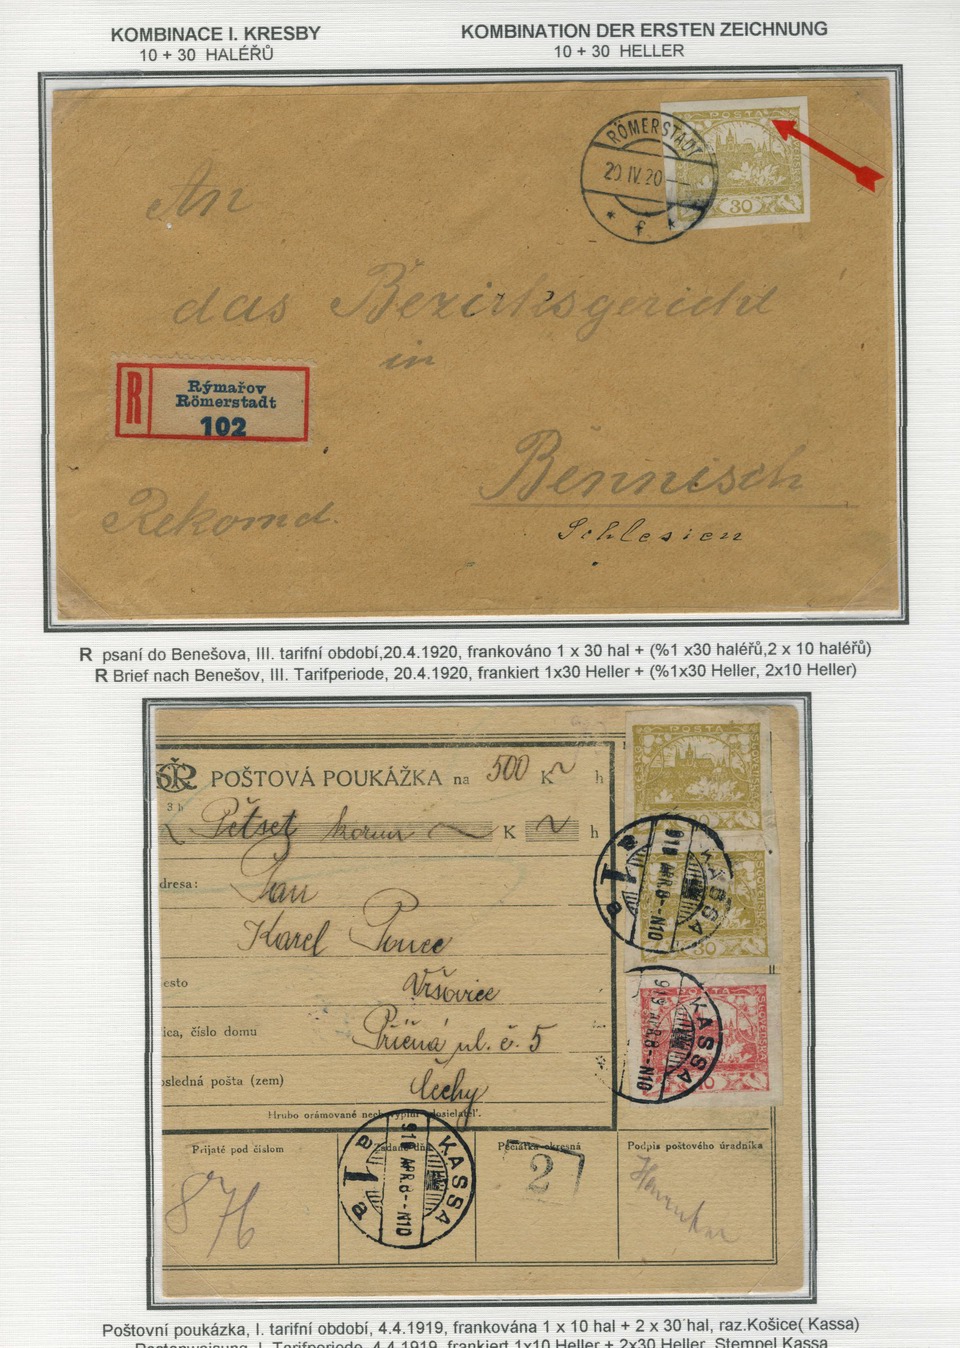 KOMBINACE I. KRESBY
10 + 30 HALÉŘŮ
KOMBINATION DER ERSTEN ZEICHNUNG
10 + 30 HELLER
POSTA
RÖMERSTADT
20.IV.20
* f. *
30
An
das Bezirksgericht
in
Bennisch
Schlesien
R
Rýmařov
Römerstadt
102
Rekomd.
R psaní do Benešova, III. tarifní období,20.4.1920, frankováno 1 x 30 hal + (%1 x30 haléřů,2 x 10 haléřů)
R Brief nach Benešov, III. Tarifperiode, 20.4.1920, frankiert 1x30 Heller + (%1x30 Heller, 2x10 Heller)
POŠTOVÁ POUKÁŽKA na 500 K h
3 h
Pětset korun K h
dresa:
Pan
Karel
esto
Vršovice
ica, číslo domu
Příčná ul. č. 5
osledná pošta (zem)
Čechy
Hrubo orámované nech vyplní odosielateľ.
POSTA
KASSA
919 APR. 8 - N10
a 1 a
30
KASSA
919 APR. 8 - N10
10
Prijaté pod číslom
Pečiatka okresná
Podpis poštového úradníka
876
KASSA
919 APR. 8 - N10
a 1 a
2
Poštovní poukázka, I. tarifní období, 4.4.1919, frankována 1 x 10 hal + 2 x 30 hal, raz.Košice( Kassa)
Postanweisung, I. Tarifperiode, 4.4.1919, frankiert 1x10 Heller + 2x30 Heller, Stempel Kassa